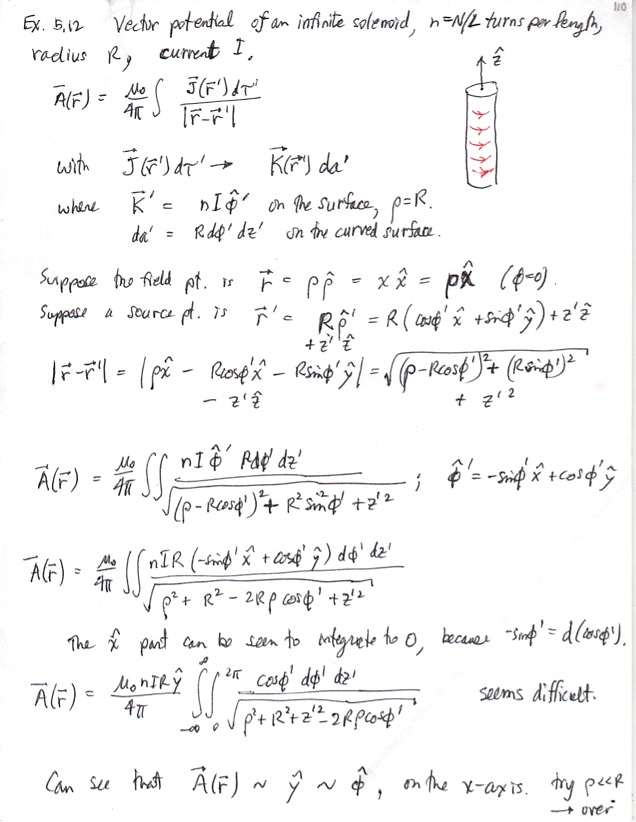 110
Ex. 5.12 Vector potential of an infinite solenoid, n=N/L turns per length,
radius R, current I.
A⃗(r⃗) = μ₀/4π ∫ J⃗(r⃗')dτ' / |r⃗-r⃗'|
ẑ
with J⃗(r⃗')dτ' → K⃗(r⃗') da'
where K⃗' = nI φ̂' on the surface, ρ=R.
da' = Rdφ'dz' on the curved surface.
Suppose the field pt. is r⃗ = ρρ̂ = xx̂ = ρx̂ (φ=0).
Suppose a source pt. is r⃗' = Rρ̂' + z'ẑ = R(cosφ' x̂ + sinφ' ŷ) + z'ẑ
|r⃗-r⃗'| = |ρx̂ - Rcosφ'x̂ - Rsinφ'ŷ - z'ẑ| = √((ρ-Rcosφ')² + (Rsinφ')² + z'²)
A⃗(r⃗) = μ₀/4π ∫∫ nI φ̂' Rdφ' dz' / √((ρ-Rcosφ')² + R² sin²φ' + z'²) ; φ̂' = -sinφ' x̂ + cosφ' ŷ
A⃗(r⃗) = μ₀/4π ∫∫ nIR (-sinφ' x̂ + cosφ' ŷ) dφ' dz' / √(ρ² + R² - 2Rρ cosφ' + z'²)
The x̂ part can be seen to integrate to 0, because -sinφ' = d(cosφ').
A⃗(r⃗) = μ₀nIRŷ/4π ∫_{-∞}^{∞} ∫_0^{2π} cosφ' dφ' dz' / √(ρ²+R²+z'²-2Rρcosφ') seems difficult.
Can see that A⃗(r⃗) ~ ŷ ~ φ̂, on the x-axis. try ρ<<R
→ over